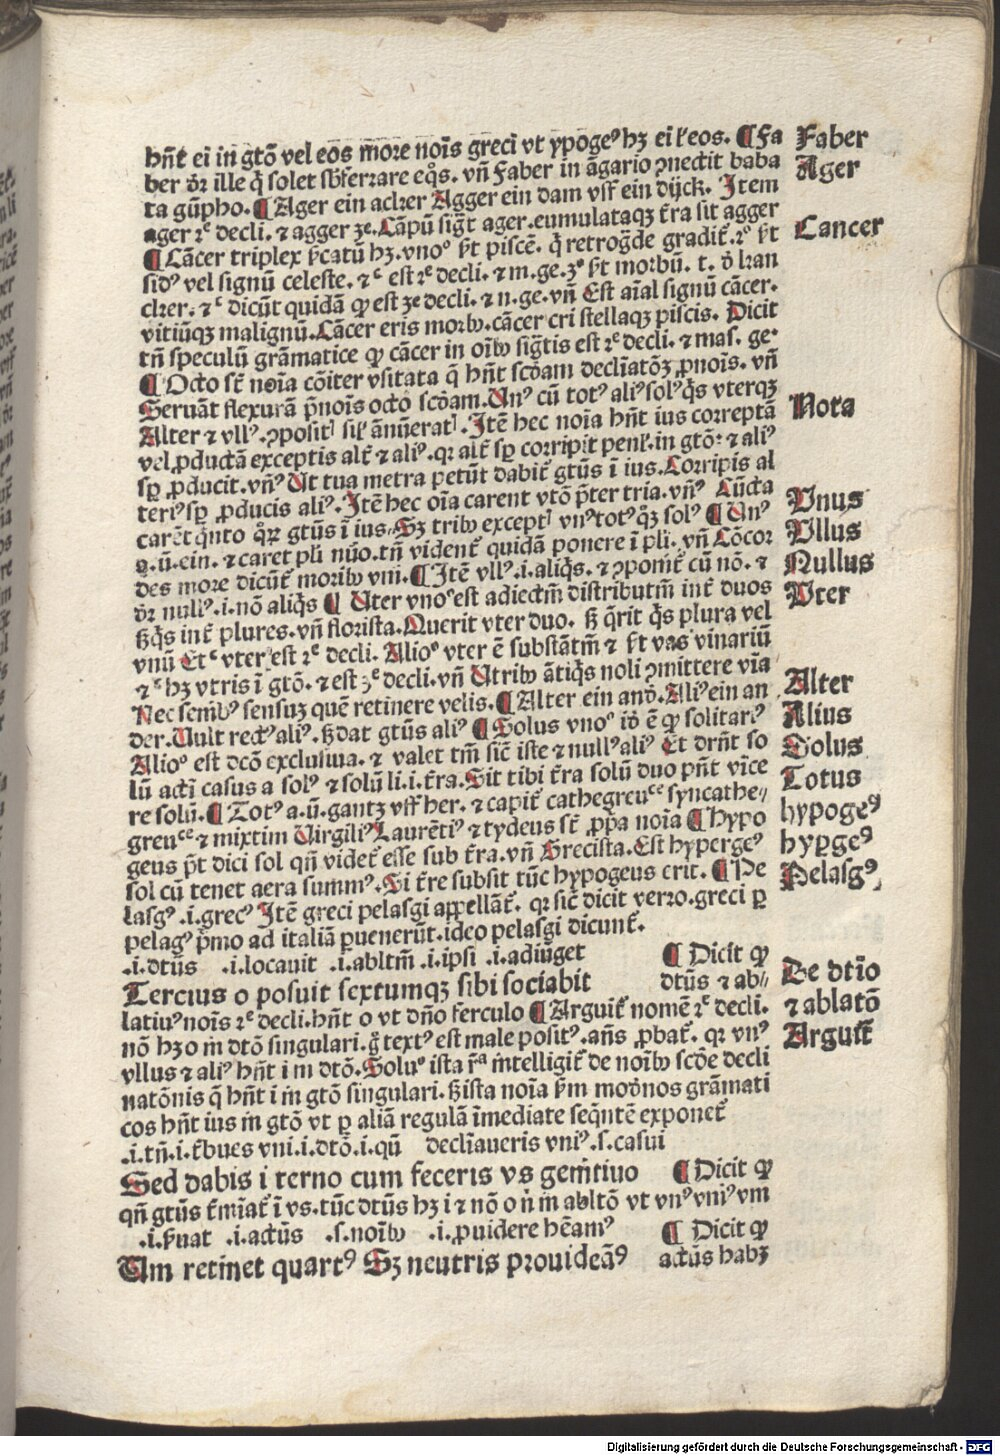 hn̄t ei in gtō vel eos more noīs greci vt ypogeꝰ hꝫ ei ł eos. ¶ Fa
ber dr̄ ille q̇ solet sb̄ferrare eq̇s. vn̄ Faber in āgario ꝯnectit baba
ta gūpho. ¶ Ager ein acker Agger ein dam vff ein dijck. Item
ager 2ͤ decli. ⁊ agger 3ͤ. Cāpū sigt̄ ager. eumulataqꝫ t̄ra sit agger
¶ Cācer triplex p̄catū hꝫ. vnoᵒ p̄t piscē. q̇ retrogde gradit᷑. 2ᵒ p̄t
sidꝰ vel signū celeste. ⁊ ͨ est 2ͤ decli. ⁊ m. ge. 3ᵒ p̄t morbū. t. d̓ kan
cker. ⁊ ͨ dicūt quidā ꝙ est 3ͤ decli. ⁊ n. ge. vn̄ Est aīal signū cācer.
vitiūqꝫ malignū. Cācer eris morbo. cācer cri stellaqꝫ piscis. Dicit
tn̄ speculū grāmatice ꝙ cācer in oībꝰ sigtis est 2ͤ decli. ⁊ mas. ge.
¶ Octo st̄ noīa cōiter vsitata q̄ hn̄t scdam decliatōꝫ ꝓnoīs. vn̄
Seruāt flexurā p̄nois octo scdam. Vnꝰ cū totꝰ aliꝰ solꝰ q̇s vterqꝫ
Alter ⁊ vllꝰ. ꝯposit silꝰ ānuerat. Itē hec noīa hn̄t ius correptā
vel ꝓductā exceptis alt᷑ ⁊ aliꝰ. qr alt᷑ sꝑ corripit penł. in gtō. ⁊ aliꝰ
sꝑ ꝓducit. vn̄ Ut tua metra petūt dabit᷑ gtūs ī ius. Corripis al
teriꝰ sꝑ ꝓducis aliꝰ. Itē hec oīa carent vtō p̄ter tria. vn̄ Cūcta
carēt q̇nto q̇ꝝ gtūs ī ius. Sꝫ tribꝰ except vnꝰ totꝰ qꝫ solꝰ ¶ Unꝰ
a. ū. ein. ⁊ caret pli nūo. tn̄ vident᷑ quidā ponere ī pli. vn̄ Cōcor
des more dicūt᷑ moribꝰ vni. ¶ Itē vllꝰ. i. aliq̇s. ⁊ ꝯponit᷑ cū nō. ⁊
dr̄ nullꝰ. i. nō aliq̇s ¶ Uter vnoᵒ est adiectm̄ distributm̄ int᷑ duos
ꝫ q̇s int᷑ plures. vn̄ florista. Querit vter duo. ꝫ q̄rit q̇s plura vel
vnū Et ͨ vter est 2ͤ decli. Alioᵒ vter ē substātm̄ ⁊ p̄t vas vinariū
⁊ ͨ hꝫ vtris ī gtō. ⁊ est 3ͤ decli. vn̄ Utribꝰ ātiq̇s noli ꝯmittere vīa
Nec sembꝰ sensuꝫ quē retinere velis. ¶ Alter ein and̓. Aliꝰ ein an
der. Uult rectꝰ aliꝰ. ꝫ dat gtūs aliꝰ ¶ Solus vnoᵒ id̓ ē ꝙ solitariꝰ
Alioᵒ est dcō exclusiua. ⁊ valet tm̄ sic̄ iste ⁊ nullꝰ aliꝰ Et drn̄t so
lū acti casus a solꝰ ⁊ solū li. i. t̄ra. Sit tibi t̄ra solū duo pn̄t vīce
re solū. ¶ Totꝰ a. ū. gantz vff her. ⁊ capit᷑ cathegreuͨͤ syncathe⸗
greuͨͤ ⁊ mixtim Uirgiliꝰ Laurētiꝰ ⁊ tydeus st̄ ꝓpa noīa ¶ Hypo
geus p̄t dici sol qn̄ videt᷑ esse sub t̄ra. vn̄ Grecista. Est hypergeꝰ
sol cū tenet aera summꝰ. Si t̄re subsit tūc hypogeus erit. ¶ Pe
lasgꝰ .i. grecꝰ Itē greci pelasgi appellāt᷑. qr sic̄ dicit verro. greci ꝑ
pelagꝰ p̄mo ad italiā ꝑuenerūt. ideo pelasgi dicunt᷑.
.i. dtūs .i. locauit .i. abltm̄ .i. ipsi .i. adiūget ¶ Dicit ꝙ
Tercius o posuit sextumqꝫ sibi sociabit dtūs ⁊ ab⸗
latiuꝰ noīs 2ͤ decli. hn̄t o vt dn̄o ferculo ¶ Arguit᷑ nomē 2ͤ decli.
nō hꝫ o in dtō singulari. g̊ textꝰ est male positꝰ. an̄s ꝓbat᷑. qr vnꝰ
vllus ⁊ aliꝰ hn̄t i in dtō. Soluᵒ ista rͣ intelligit᷑ de noībꝰ scdͤ decli
natōnis q̄ hn̄t i in gtō singulari. ꝫ ista noīa ẜm mod̓nos grāmati
cos hn̄t ius in gtō vt ꝑ aliā regulā īmediate seq̄ntē exponet᷑
.i. tn̄ .i. t᷑bues vni .i. dtō. i. qū declīaueris vniꝰ .s. casui
Sed dabis i terno cum feceris vs genitiuo ¶ Dicit ꝙ
qn̄ gtūs t᷑miat᷑ ī vs. tūc dtūs hꝫ i ⁊ nō o n̄ in abltō vt vnꝰ vniꝰ vm
.i. ẜuat .i. actūs .s. noībꝰ .i. ꝓuidere hēamꝰ ¶ Dicit ꝙ
Um retinet quartꝰ Sꝫ neutris prouideāꝰ actūs habꝫ
Faber
Ager
Cancer
Nota
Vnus
Vllus
Nullus
Vter
Alter
Alius
Solus
Totus
hypogeꝰ
hyꝑgeꝰ
Pelasgꝰ
De dtīo
⁊ ablatō
Arguit᷑
Digitalisierung gefördert durch die Deutsche Forschungsgemeinschaft - DFG